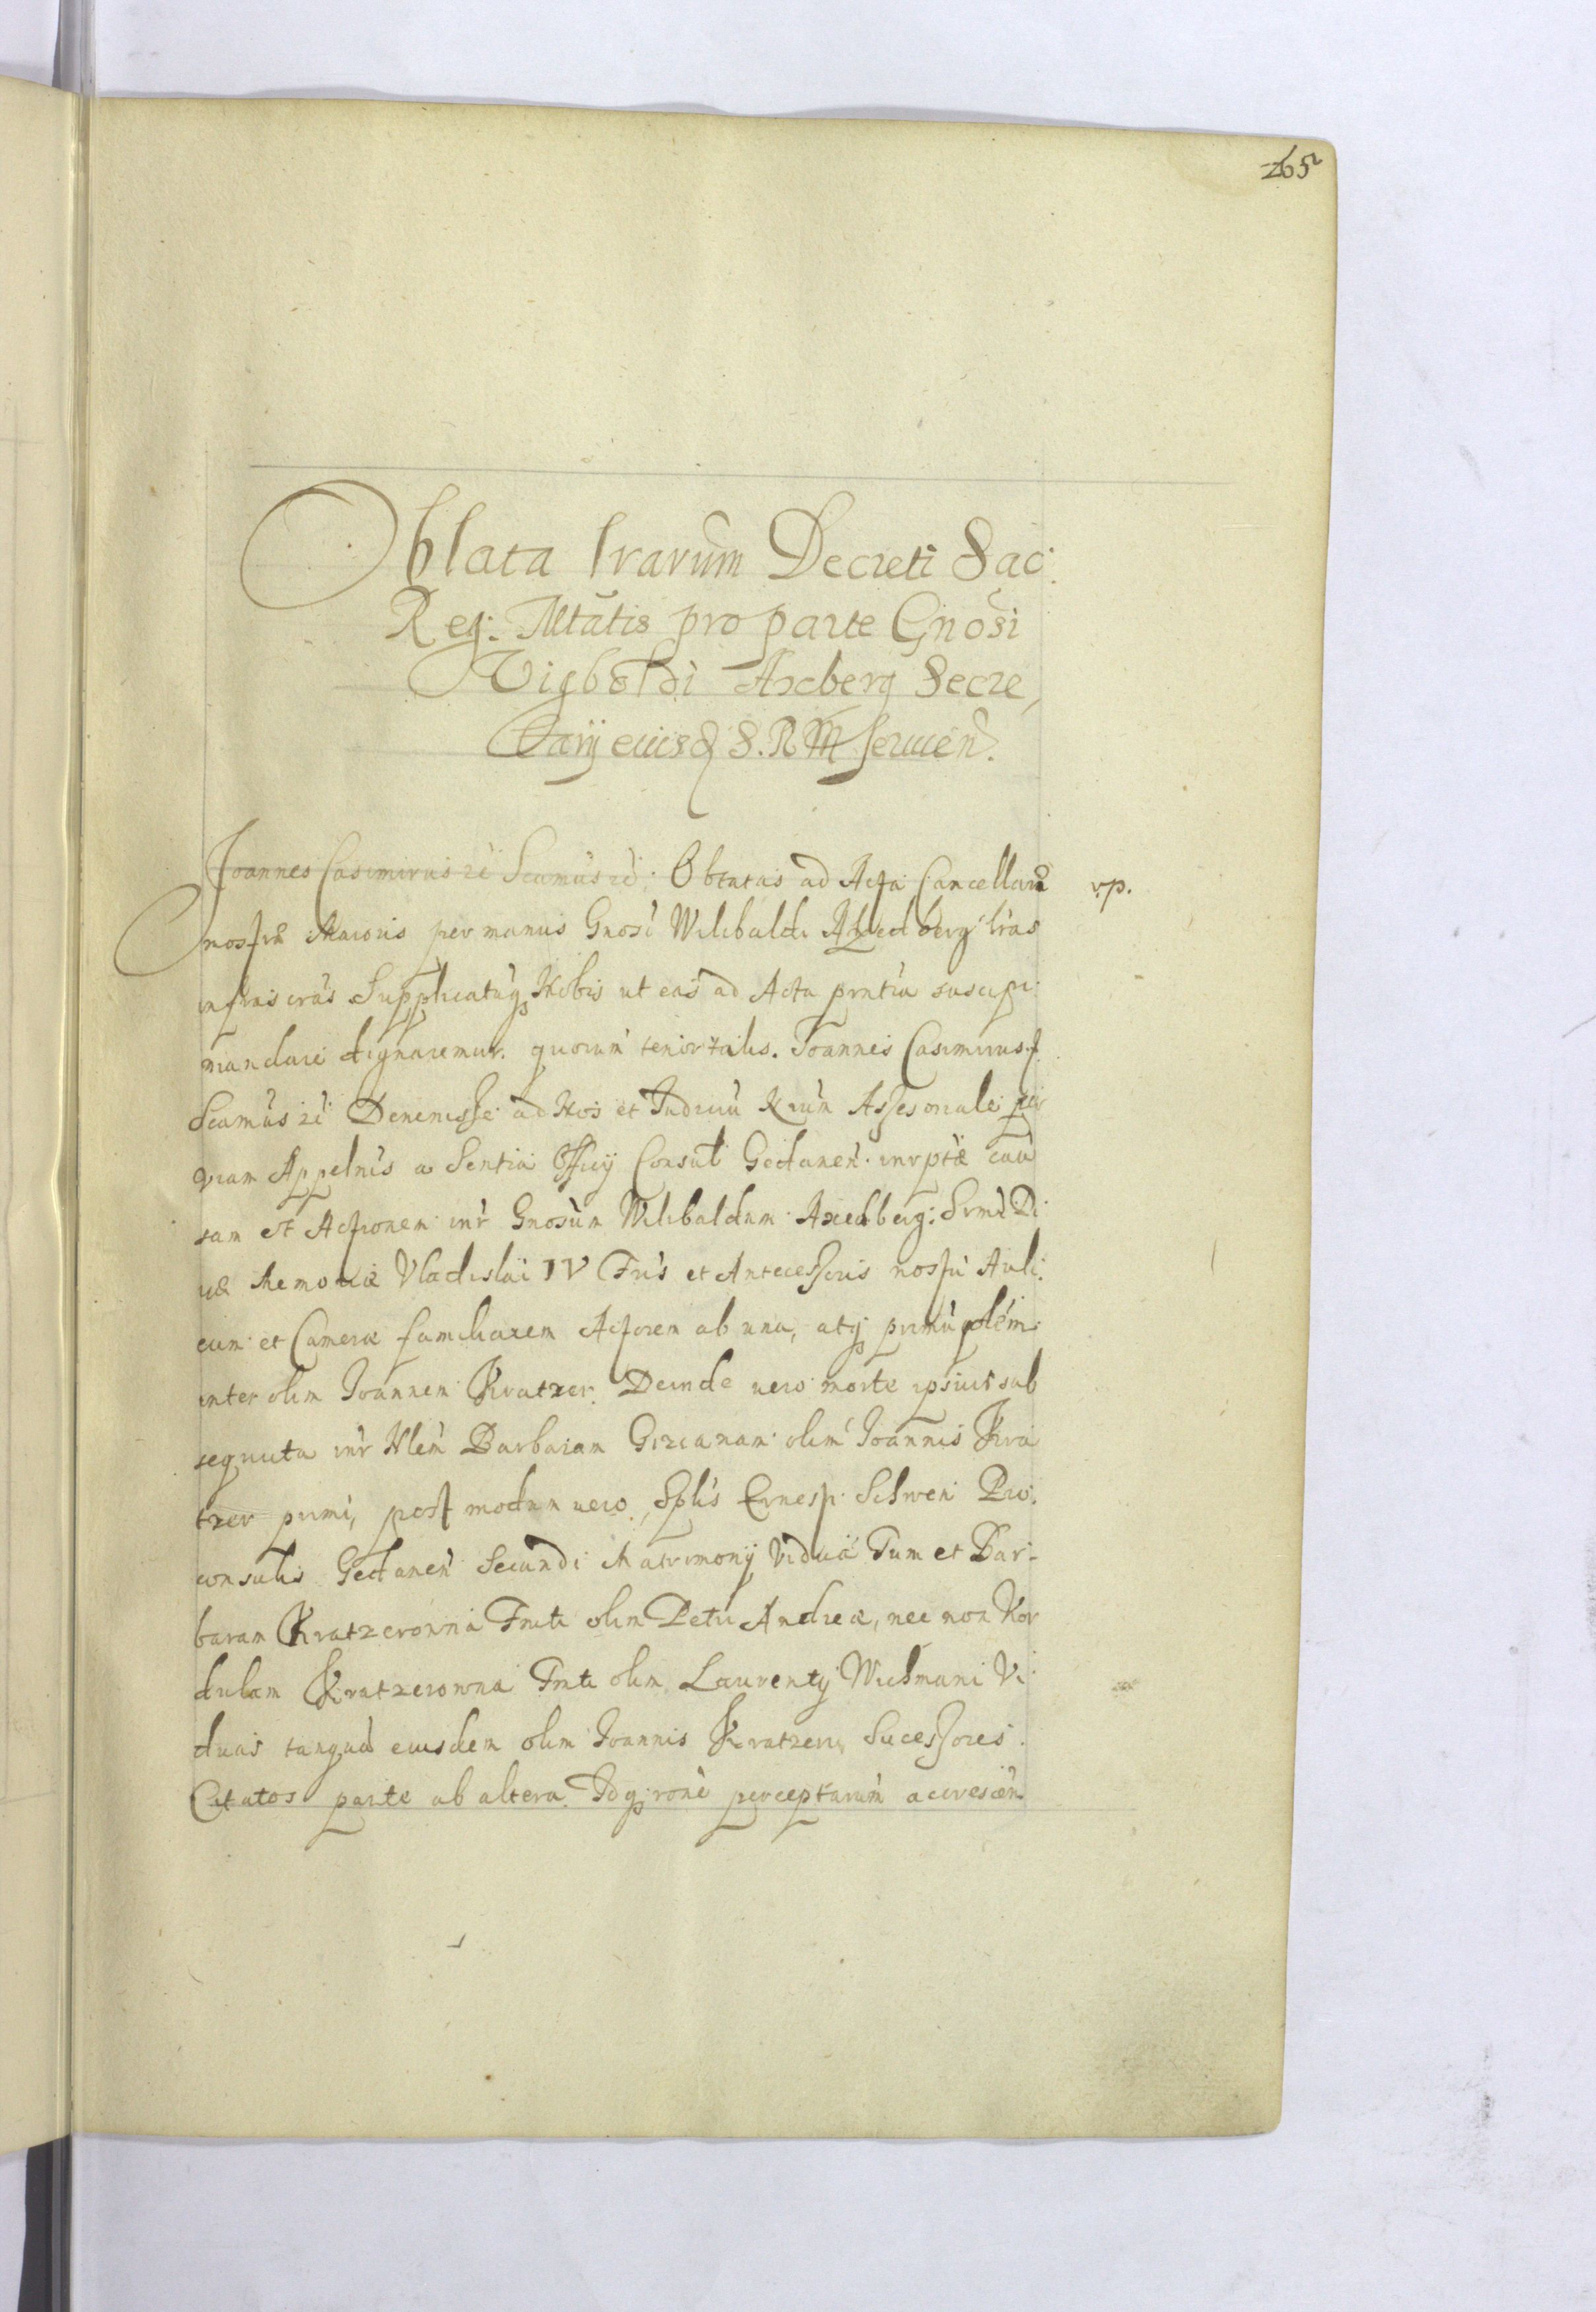 265
Oblata lrarum Decreti Sac:
Reg: Mtatis pro parte Gnosi
Vigboldi Axberg Secre,
tarij eiusq S. R M seruien.
Joannes Casimirus zc Scamus zc. Obtatas ad Acta Cancellariæ
v.p.
nostræ Maioris per manus Gnosi Wilibaldi Axedberg lras
infrascras Supplicatuq Nobis ut eas ad Acta prntia suscipi
mandare dignaremur. quorum tenor talis. Joannes Casimirus.
Scamus zc Devenisse ad Nos et Judiciu Nrum Assesoriale per
viam Appelnis a Sentia Officij Consul Gedanen. in rptæ cau
sam et Actionem inr Gnosum Wilibaldum Axedberg: Srmi Di
uæ Memoriæ Vladislai IV Fris et Antecessoris nostri Auli:
cum et Cameræ familiarem Actorem ab una, atq primu
inter olim Joannem Kratzer. Deinde uero morte ipsius sub
sequuta inr Nlem Barbaram Gizianam olim Joannis Kra
tzer primi, post modum uero, Splis Ernesti Schwen Pro:
consulis Gedanen Secundi Matrimonij Vidua Tum et Bar-
baram Kratzerowna olim Petri Andreæ, nec non Kor
dulam Kratzerowna olim Laurentij Wichmani Vi
duas tanqua eiusdem olim Joannis Kratzern Sucessores.
Citatos parte ab altera. Idq rone perceptarum accrescen